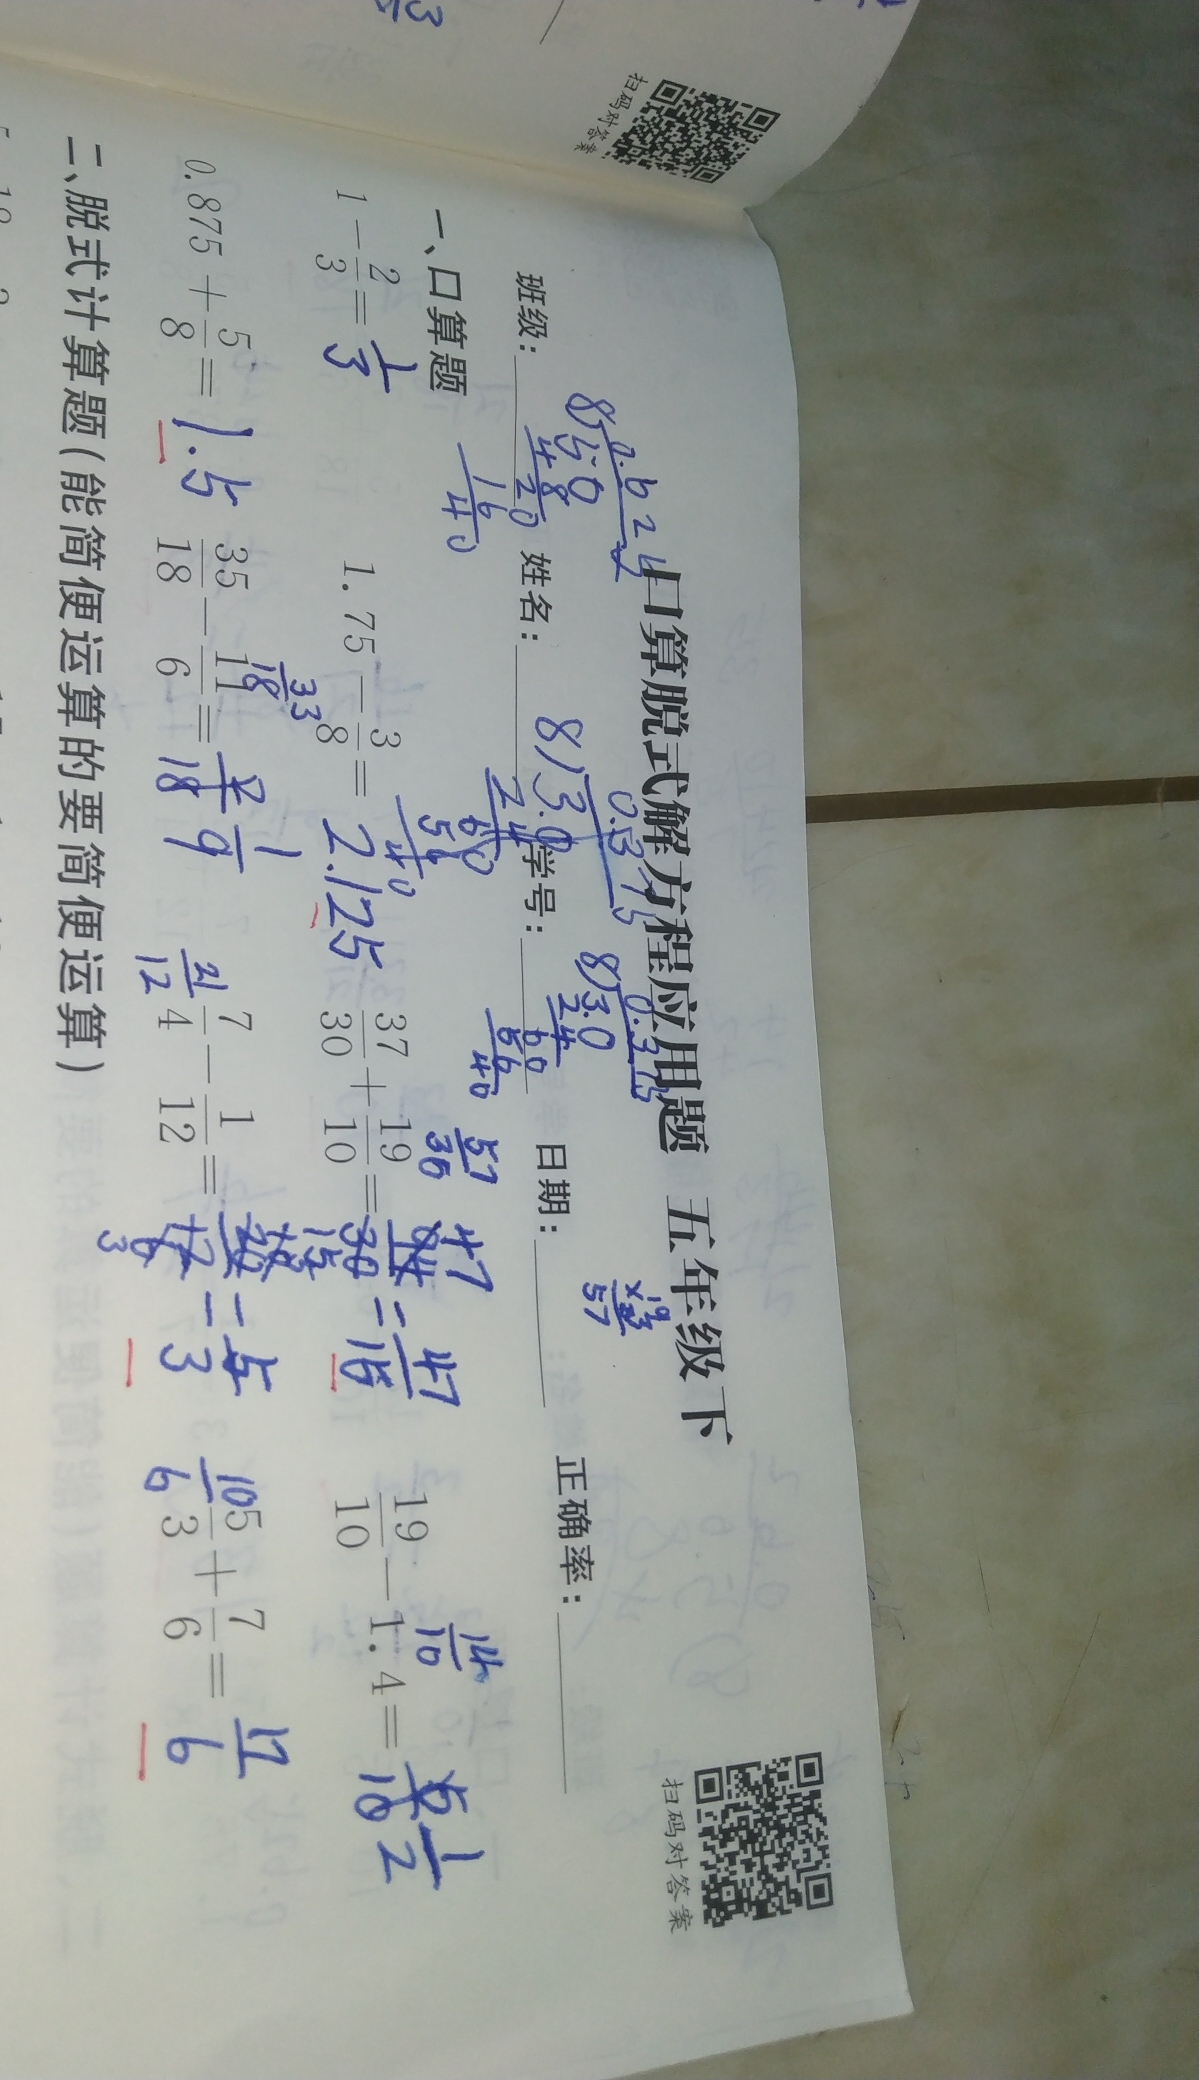 扫码对答案
口算脱式解方程应用题 五年级下
扫码对答案
班级： 姓名： 学号： 日期： 正确率：
一、口算题
1 - 2/3 = 1/3 1.75 - 3/8 = 2.125 37/30 + 19/10 = 47/15 19/10 - 1.4 = 5/10 1/2
0.875 + 5/8 = 1.5 35/18 - 11/6 = 2/18 1/9 7/4 - 1/12 = 20/12 = 5/3 5/3 + 7/6 = 17/6
33/18 21/12 10/6 57/30 14/10
二、脱式计算题(能简便运算的要简便运算)